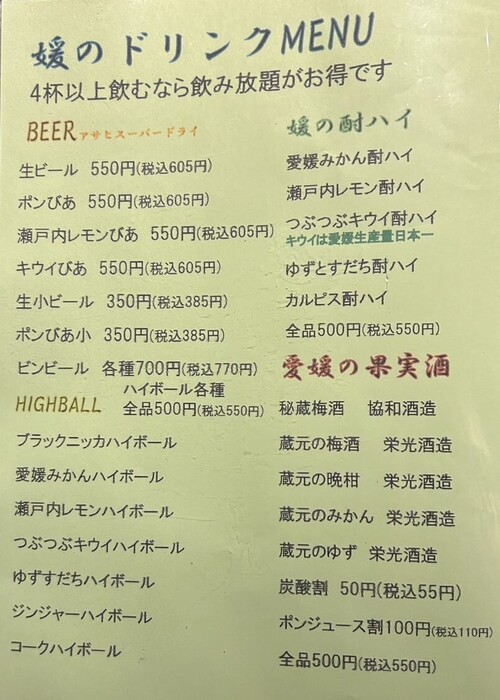 媛のドリンクMENU
4杯以上飲むなら飲み放題がお得です
BEERアサヒスーパードライ
生ビール 550円(税込605円)
ポンびあ 550円(税込605円)
瀬戸内レモンびあ 550円(税込605円)
キウイびあ 550円(税込605円)
生小ビール 350円(税込385円)
ポンびあ小 350円(税込385円)
ビンビール 各種700円(税込770円)
ハイボール各種
HIGHBALL 全品500円(税込550円)
ブラックニッカハイボール
愛媛みかんハイボール
瀬戸内レモンハイボール
つぶつぶキウイハイボール
ゆずすだちハイボール
ジンジャーハイボール
コークハイボール
媛の酎ハイ
愛媛みかん酎ハイ
瀬戸内レモン酎ハイ
つぶつぶキウイ酎ハイ
キウイは愛媛生産量日本一
ゆずとすだち酎ハイ
カルピス酎ハイ
全品500円(税込550円)
愛媛の果実酒
秘蔵梅酒 協和酒造
蔵元の梅酒 栄光酒造
蔵元の晩柑 栄光酒造
蔵元のみかん 栄光酒造
蔵元のゆず 栄光酒造
炭酸割 50円(税込55円)
ポンジュース割100円(税込110円)
全品500円(税込550円)